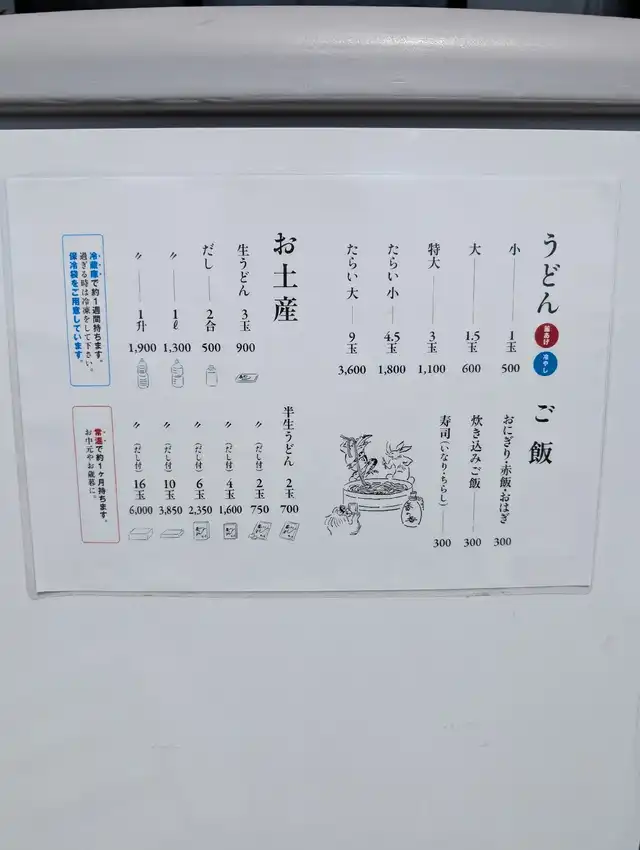 うどん 釜あげ 冷やし
小 1玉 500
大 1.5玉 600
特大 3玉 1,100
たらい小 4.5玉 1,800
たらい大 9玉 3,600
ご飯
おにぎり・赤飯・おはぎ 300
炊き込みご飯 300
寿司(いなり・ちらし) 300
お土産
生うどん 3玉 900
だし 2合 500
〃 1ℓ 1,300
〃 1升 1,900
冷蔵庫で約1週間持ちます。
過ぎる時は冷凍をして下さい。
保冷袋をご用意しています。
半生うどん 2玉 700
〃(だし付) 2玉 750
〃(だし付) 4玉 1,600
〃(だし付) 6玉 2,350
〃(だし付) 10玉 3,850
〃(だし付) 16玉 6,000
常温で約1ヶ月持ちます。
お中元やお歳暮に。